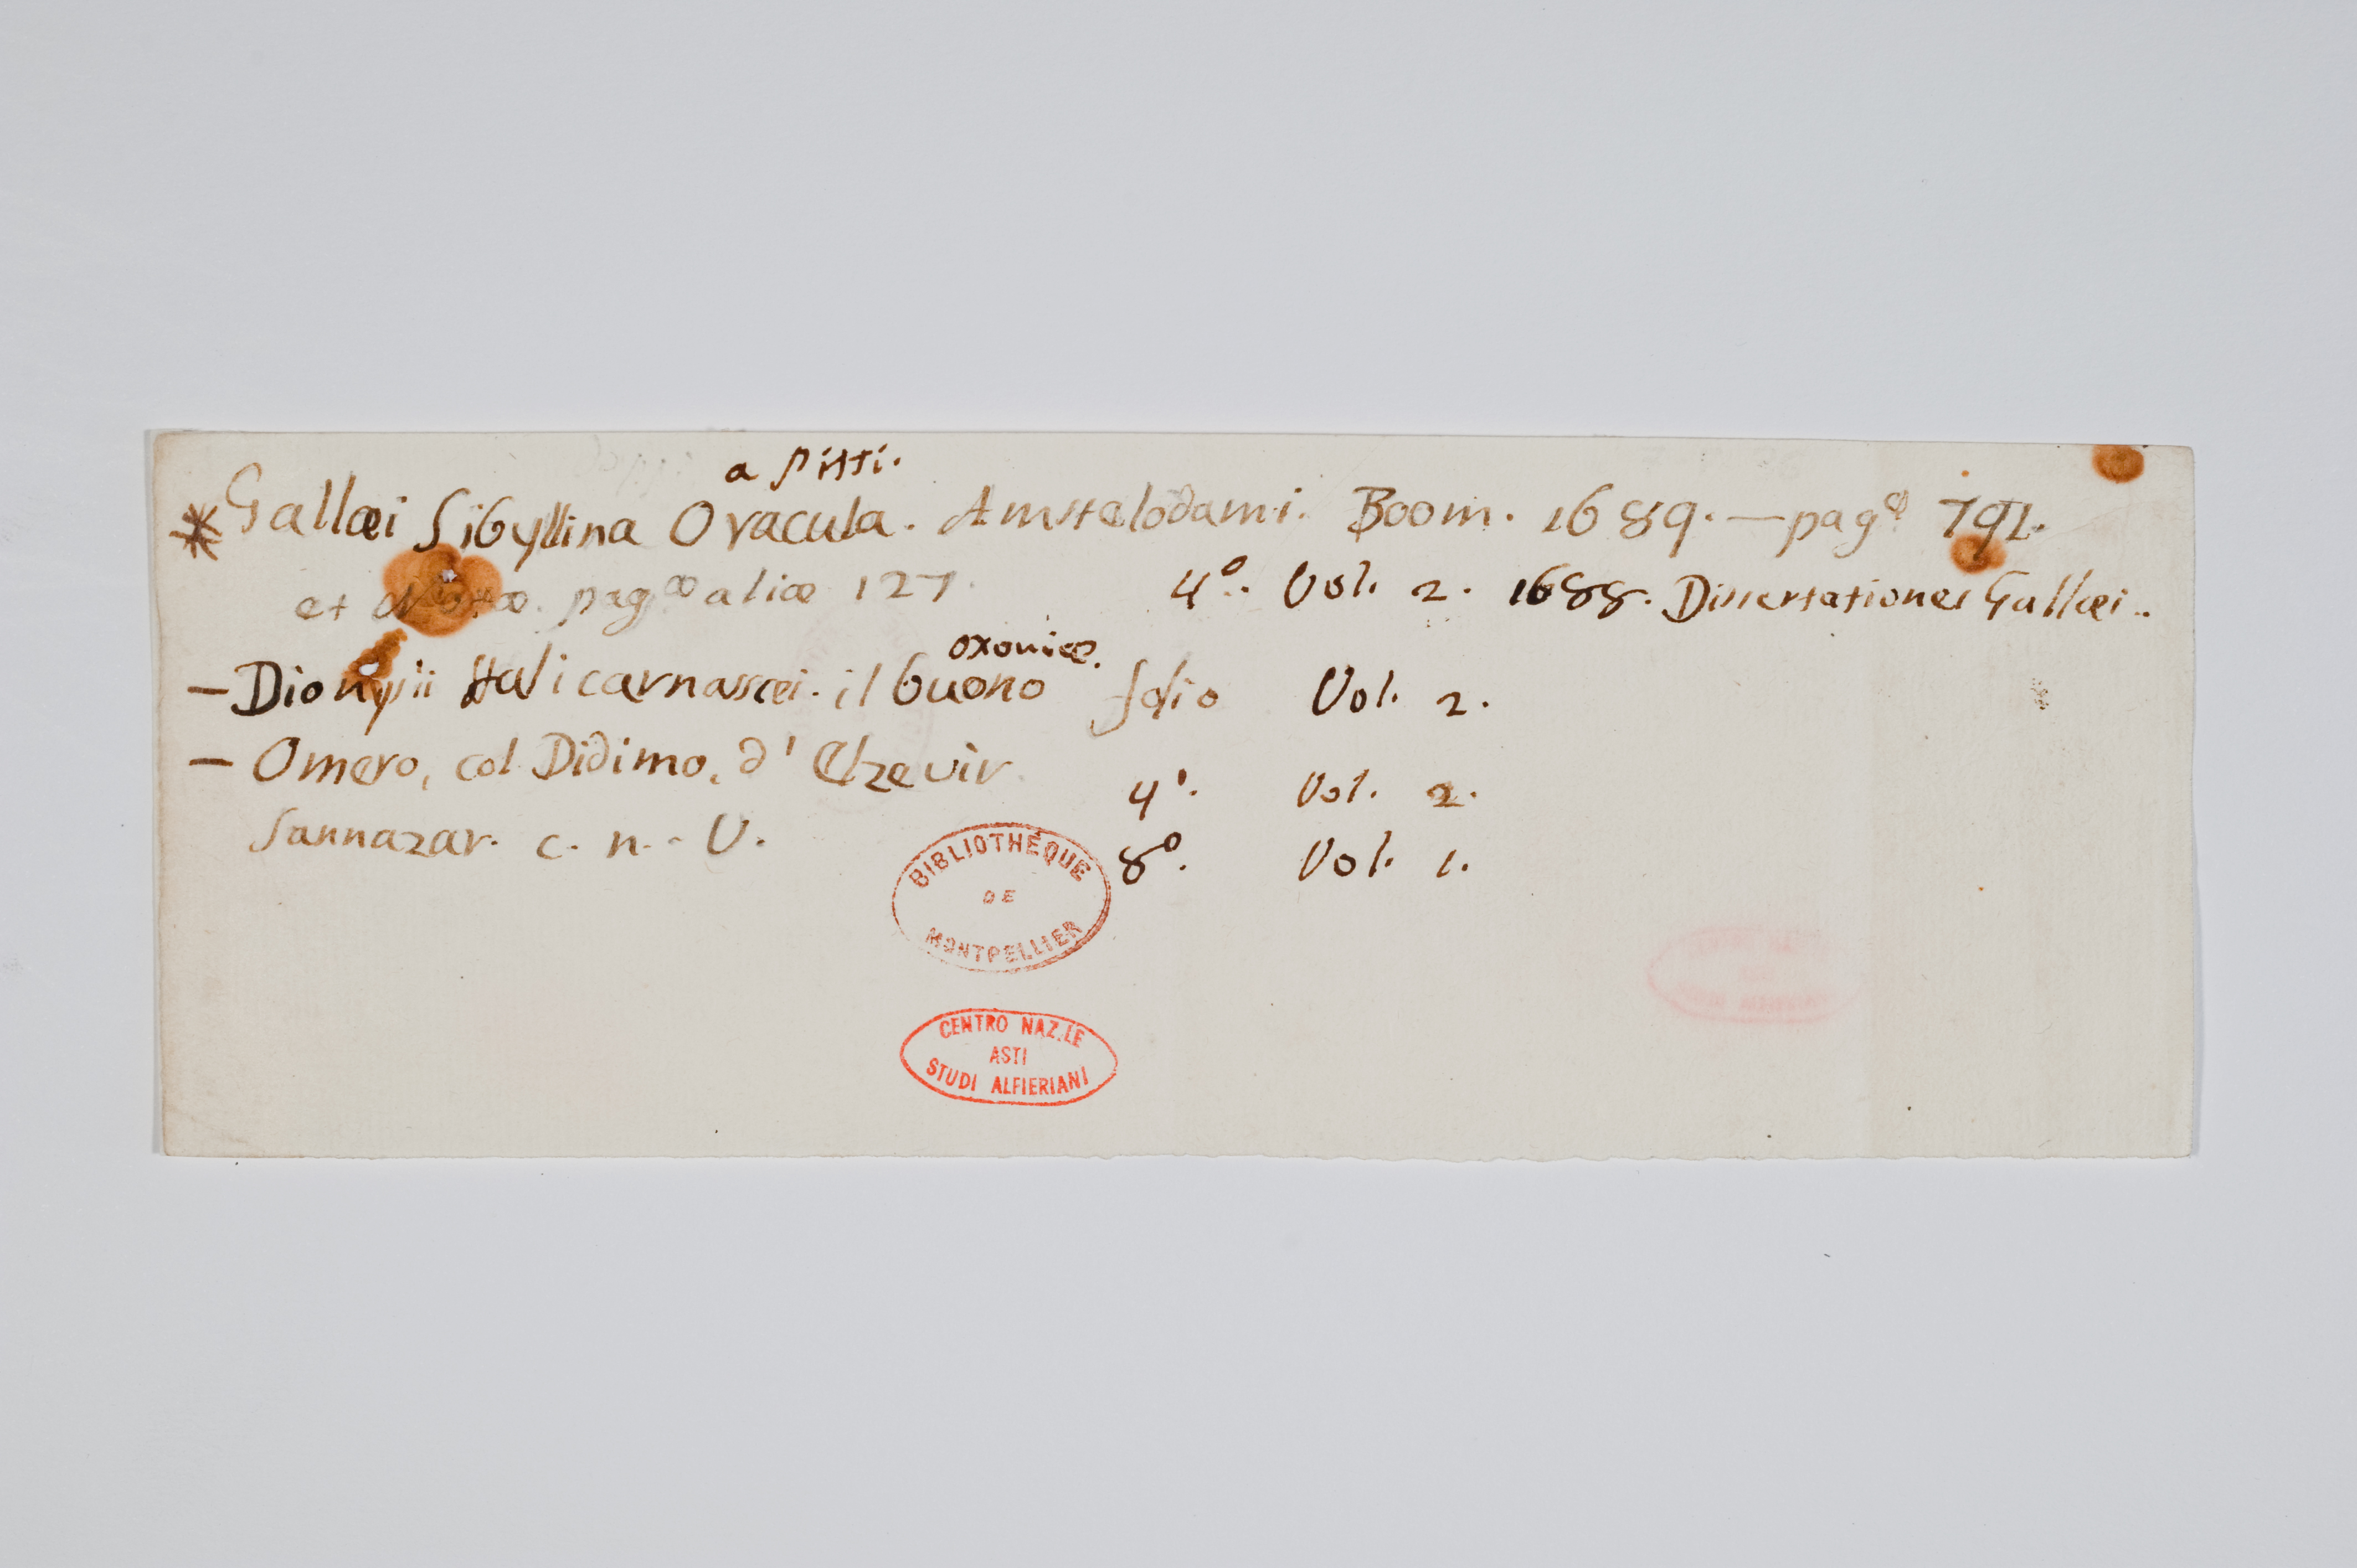 a Pitti.
* Gallæi Sibyllina Oracula. Amstelodami. Boom. 1689. — pag.æ 791.
et Notæ pag.æ aliæ 127. 4º. Vol. 2. 1688. Dissertationes Gallæi..
Oxoniæ.
— Dionysii Halicarnassei. il buono folio Vol. 2.
— Omero, col Didimo, d'Elzevir. 4º. Vol. 2.
Sannazar. c. n. - V. 8º. Vol. 1.
BIBLIOTHÉQUE
DE
MONTPELLIER
CENTRO NAZ.LE
ASTI
STUDI ALFIERIANI